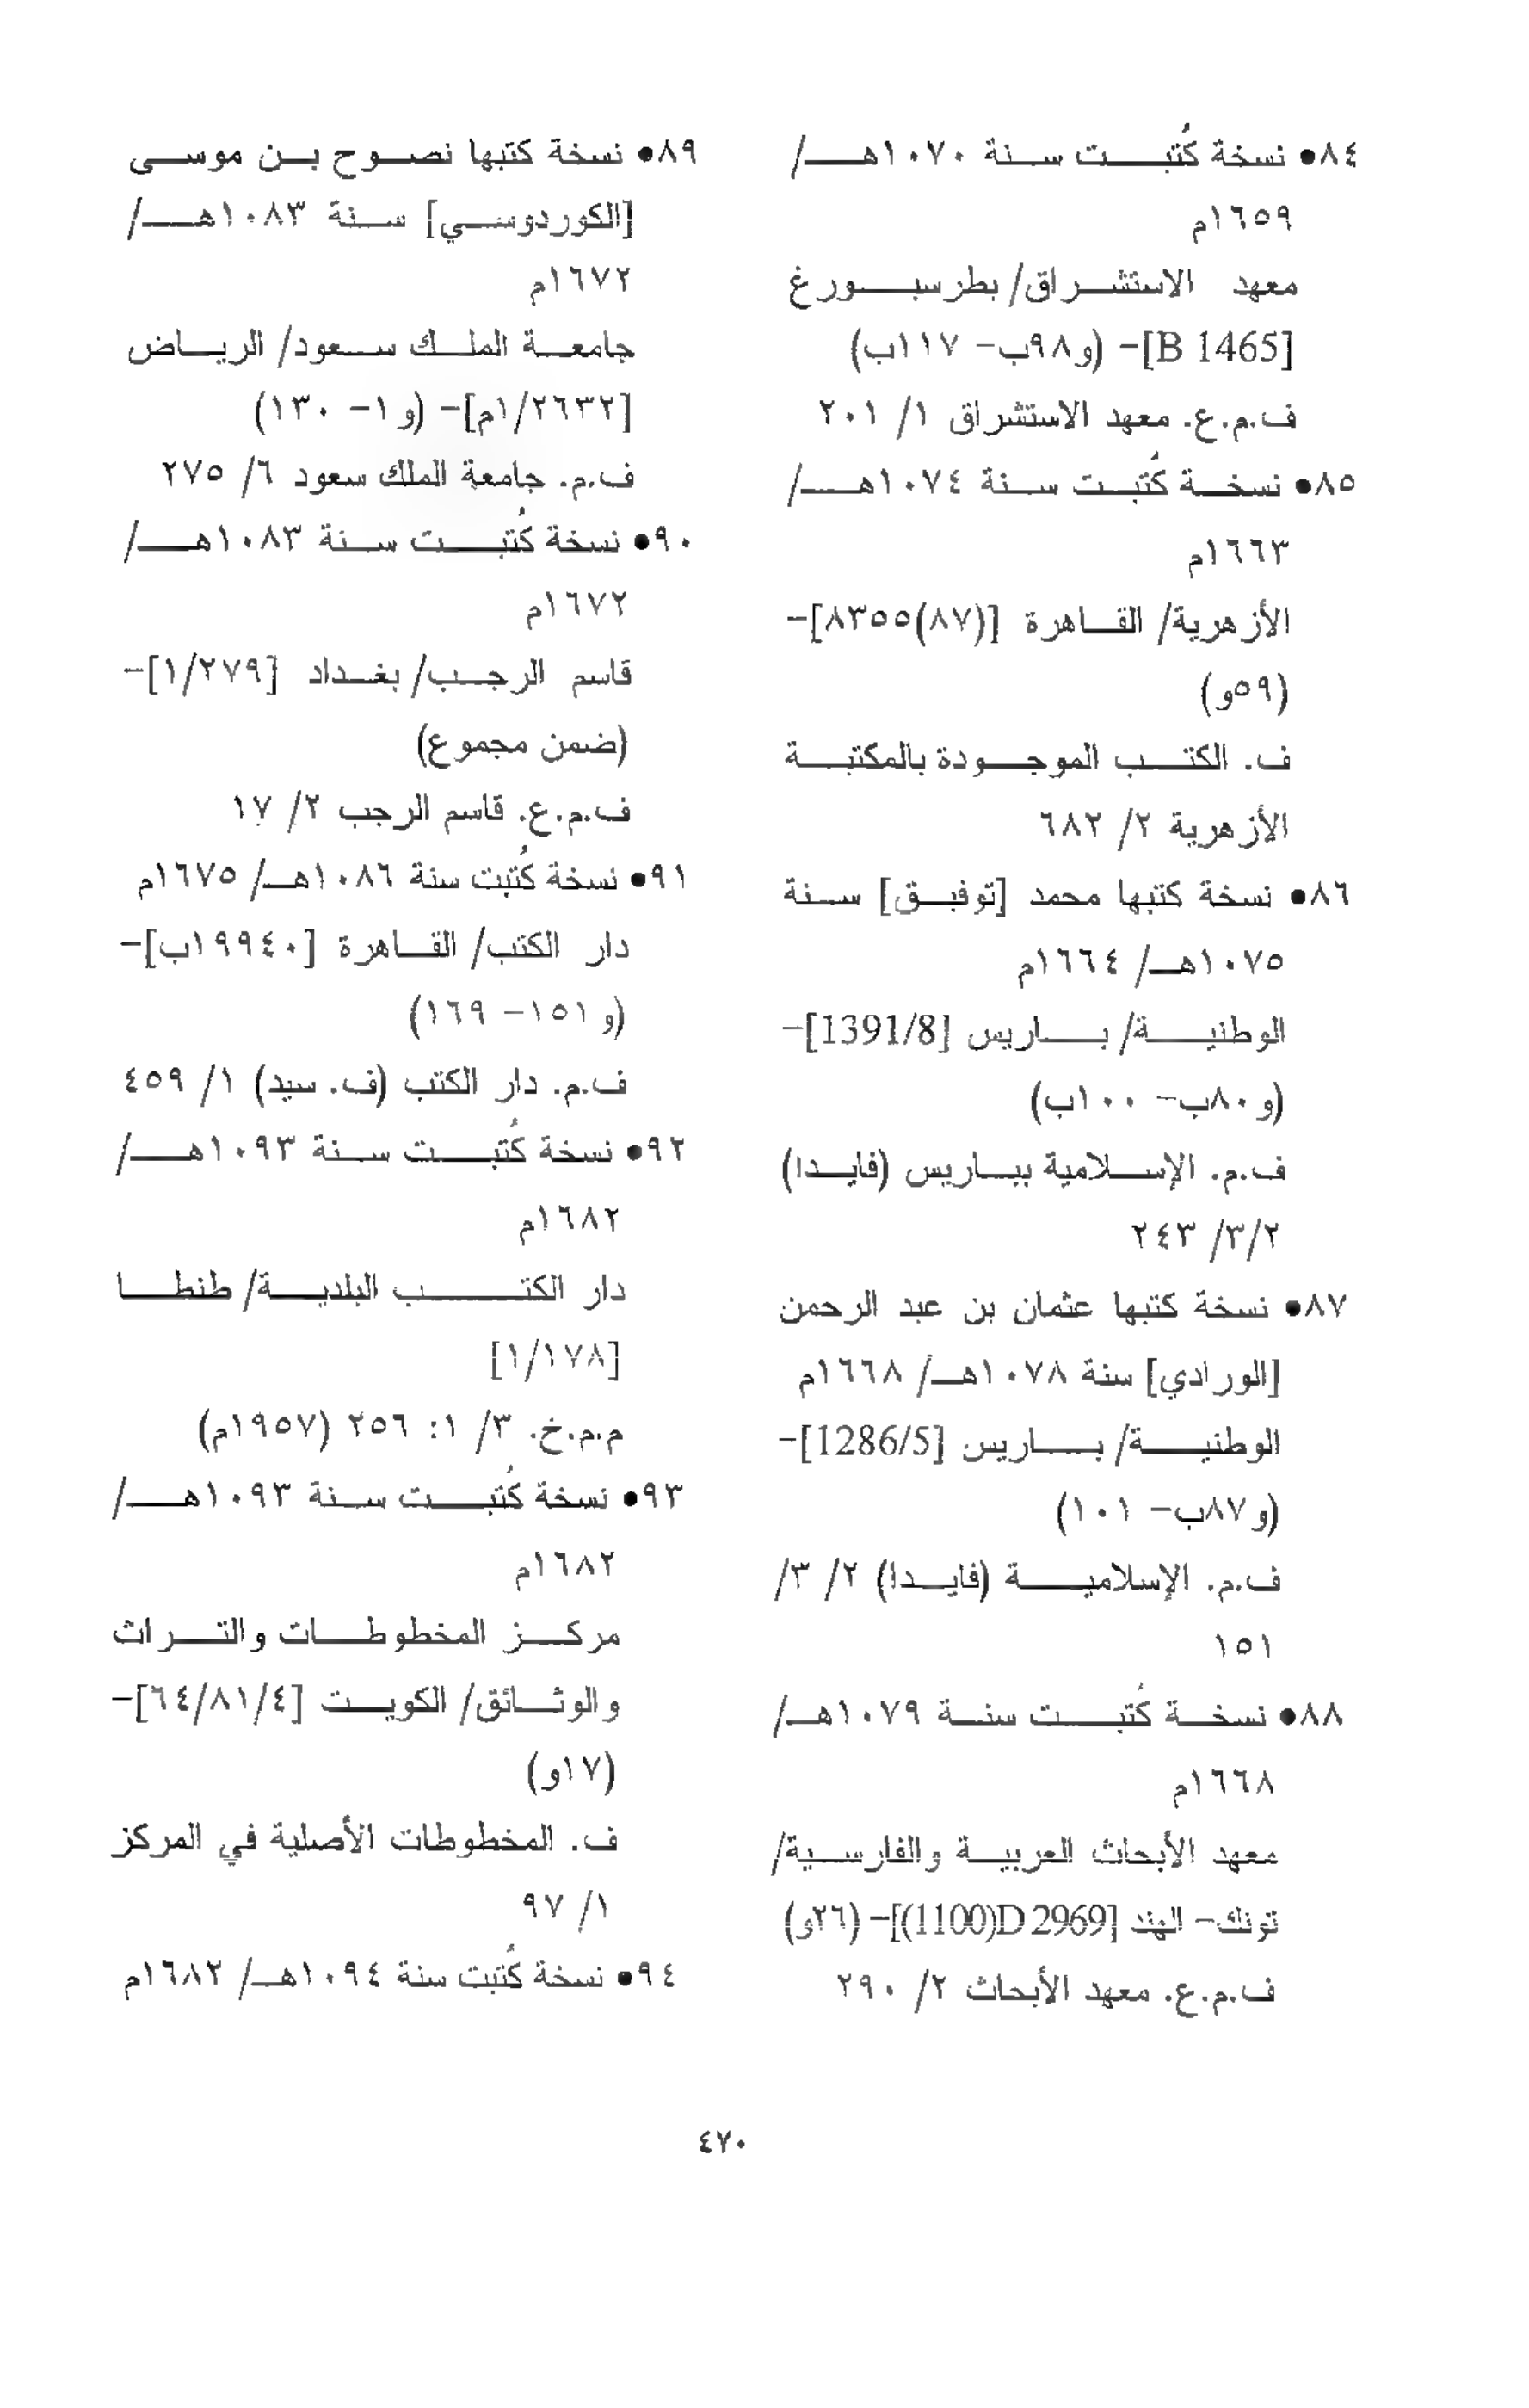 ٨٤• نسخة كُتبت سنة ١٠٧٠هـ/
١٦٥٩م
معهد الاستشراق/ بطرسبورغ
[B 1465]- (و٩٨ب- ١١٧ب)
ف.م.ع. معهد الاستشراق ١/ ٢٠١
٨٥• نسخة كُتبت سنة ١٠٧٤هـ/
١٦٦٣م
الأزهرية/ القاهرة [(٨٧)٨٣٥٥]-
(٥٩و)
ف. الكتب الموجودة بالمكتبة
الأزهرية ٢/ ٦٨٢
٨٦• نسخة كتبها محمد [توفيق] سنة
١٠٧٥هـ/ ١٦٦٤م
الوطنية/ باريس [1391/8]-
(و٨٠ب- ١٠٠ب)
ف.م. الإسلامية بباريس (فايدا)
٣/٢/ ٢٤٣
٨٧• نسخة كتبها عثمان بن عبد الرحمن
[الورادي] سنة ١٠٧٨هـ/ ١٦٦٨م
الوطنية/ باريس [1286/5]-
(و٨٧ب- ١٠١)
ف.م. الإسلامية (فايدا) ٢/ ٣/
١٥١
٨٨• نسخة كُتبت سنة ١٠٧٩هـ/
١٦٦٨م
معهد الأبحاث العربية والفارسية/
تونك- الهند [D 2969(1100)]- (٢٦و)
ف.م.ع. معهد الأبحاث ٢/ ٢٩٠
٨٩• نسخة كتبها نصوح بن موسى
[الكوردوسي] سنة ١٠٨٣هـ/
١٦٧٢م
جامعة الملك سعود/ الرياض
[١/٢٦٣٢م]- (و١- ١٣٠)
ف.م. جامعة الملك سعود ٦/ ٢٧٥
٩٠• نسخة كُتبت سنة ١٠٨٣هـ/
١٦٧٢م
قاسم الرجب/ بغداد [١/٢٧٩]-
(ضمن مجموع)
ف.م.ع. قاسم الرجب ٢/ ١٧
٩١• نسخة كُتبت سنة ١٠٨٦هـ/ ١٦٧٥م
دار الكتب/ القاهرة [١٩٩٤٠ب]-
(و١٥١- ١٦٩)
ف.م. دار الكتب (ف. سيد) ١/ ٤٥٩
٩٢• نسخة كُتبت سنة ١٠٩٣هـ/
١٦٨٢م
دار الكتب البلدية/ طنطا
[١/١٧٨]
م.م.خ. ٣/ ١: ٢٥٦ (١٩٥٧م)
٩٣• نسخة كُتبت سنة ١٠٩٣هـ/
١٦٨٢م
مركز المخطوطات والتراث
والوثائق/ الكويت [٦٤/٨١/٤]-
(١٧و)
ف. المخطوطات الأصلية في المركز
١/ ٩٧
٩٤• نسخة كُتبت سنة ١٠٩٤هـ/ ١٦٨٢م
٤٧٠